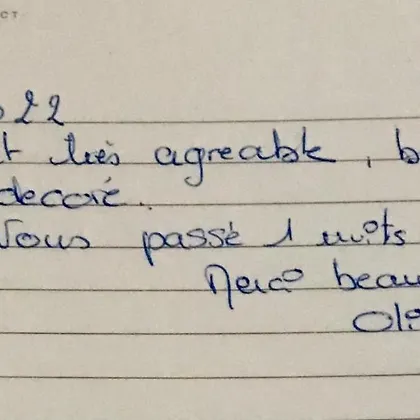 CT
022
t très agreable, b
decoré.
Nous passé 1 nuits
Merci beau
Oli